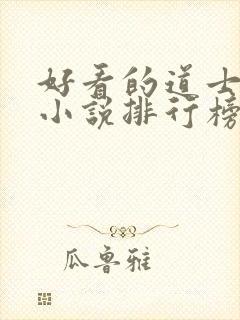 好看的道士
小说排行榜
瓜鲁雅